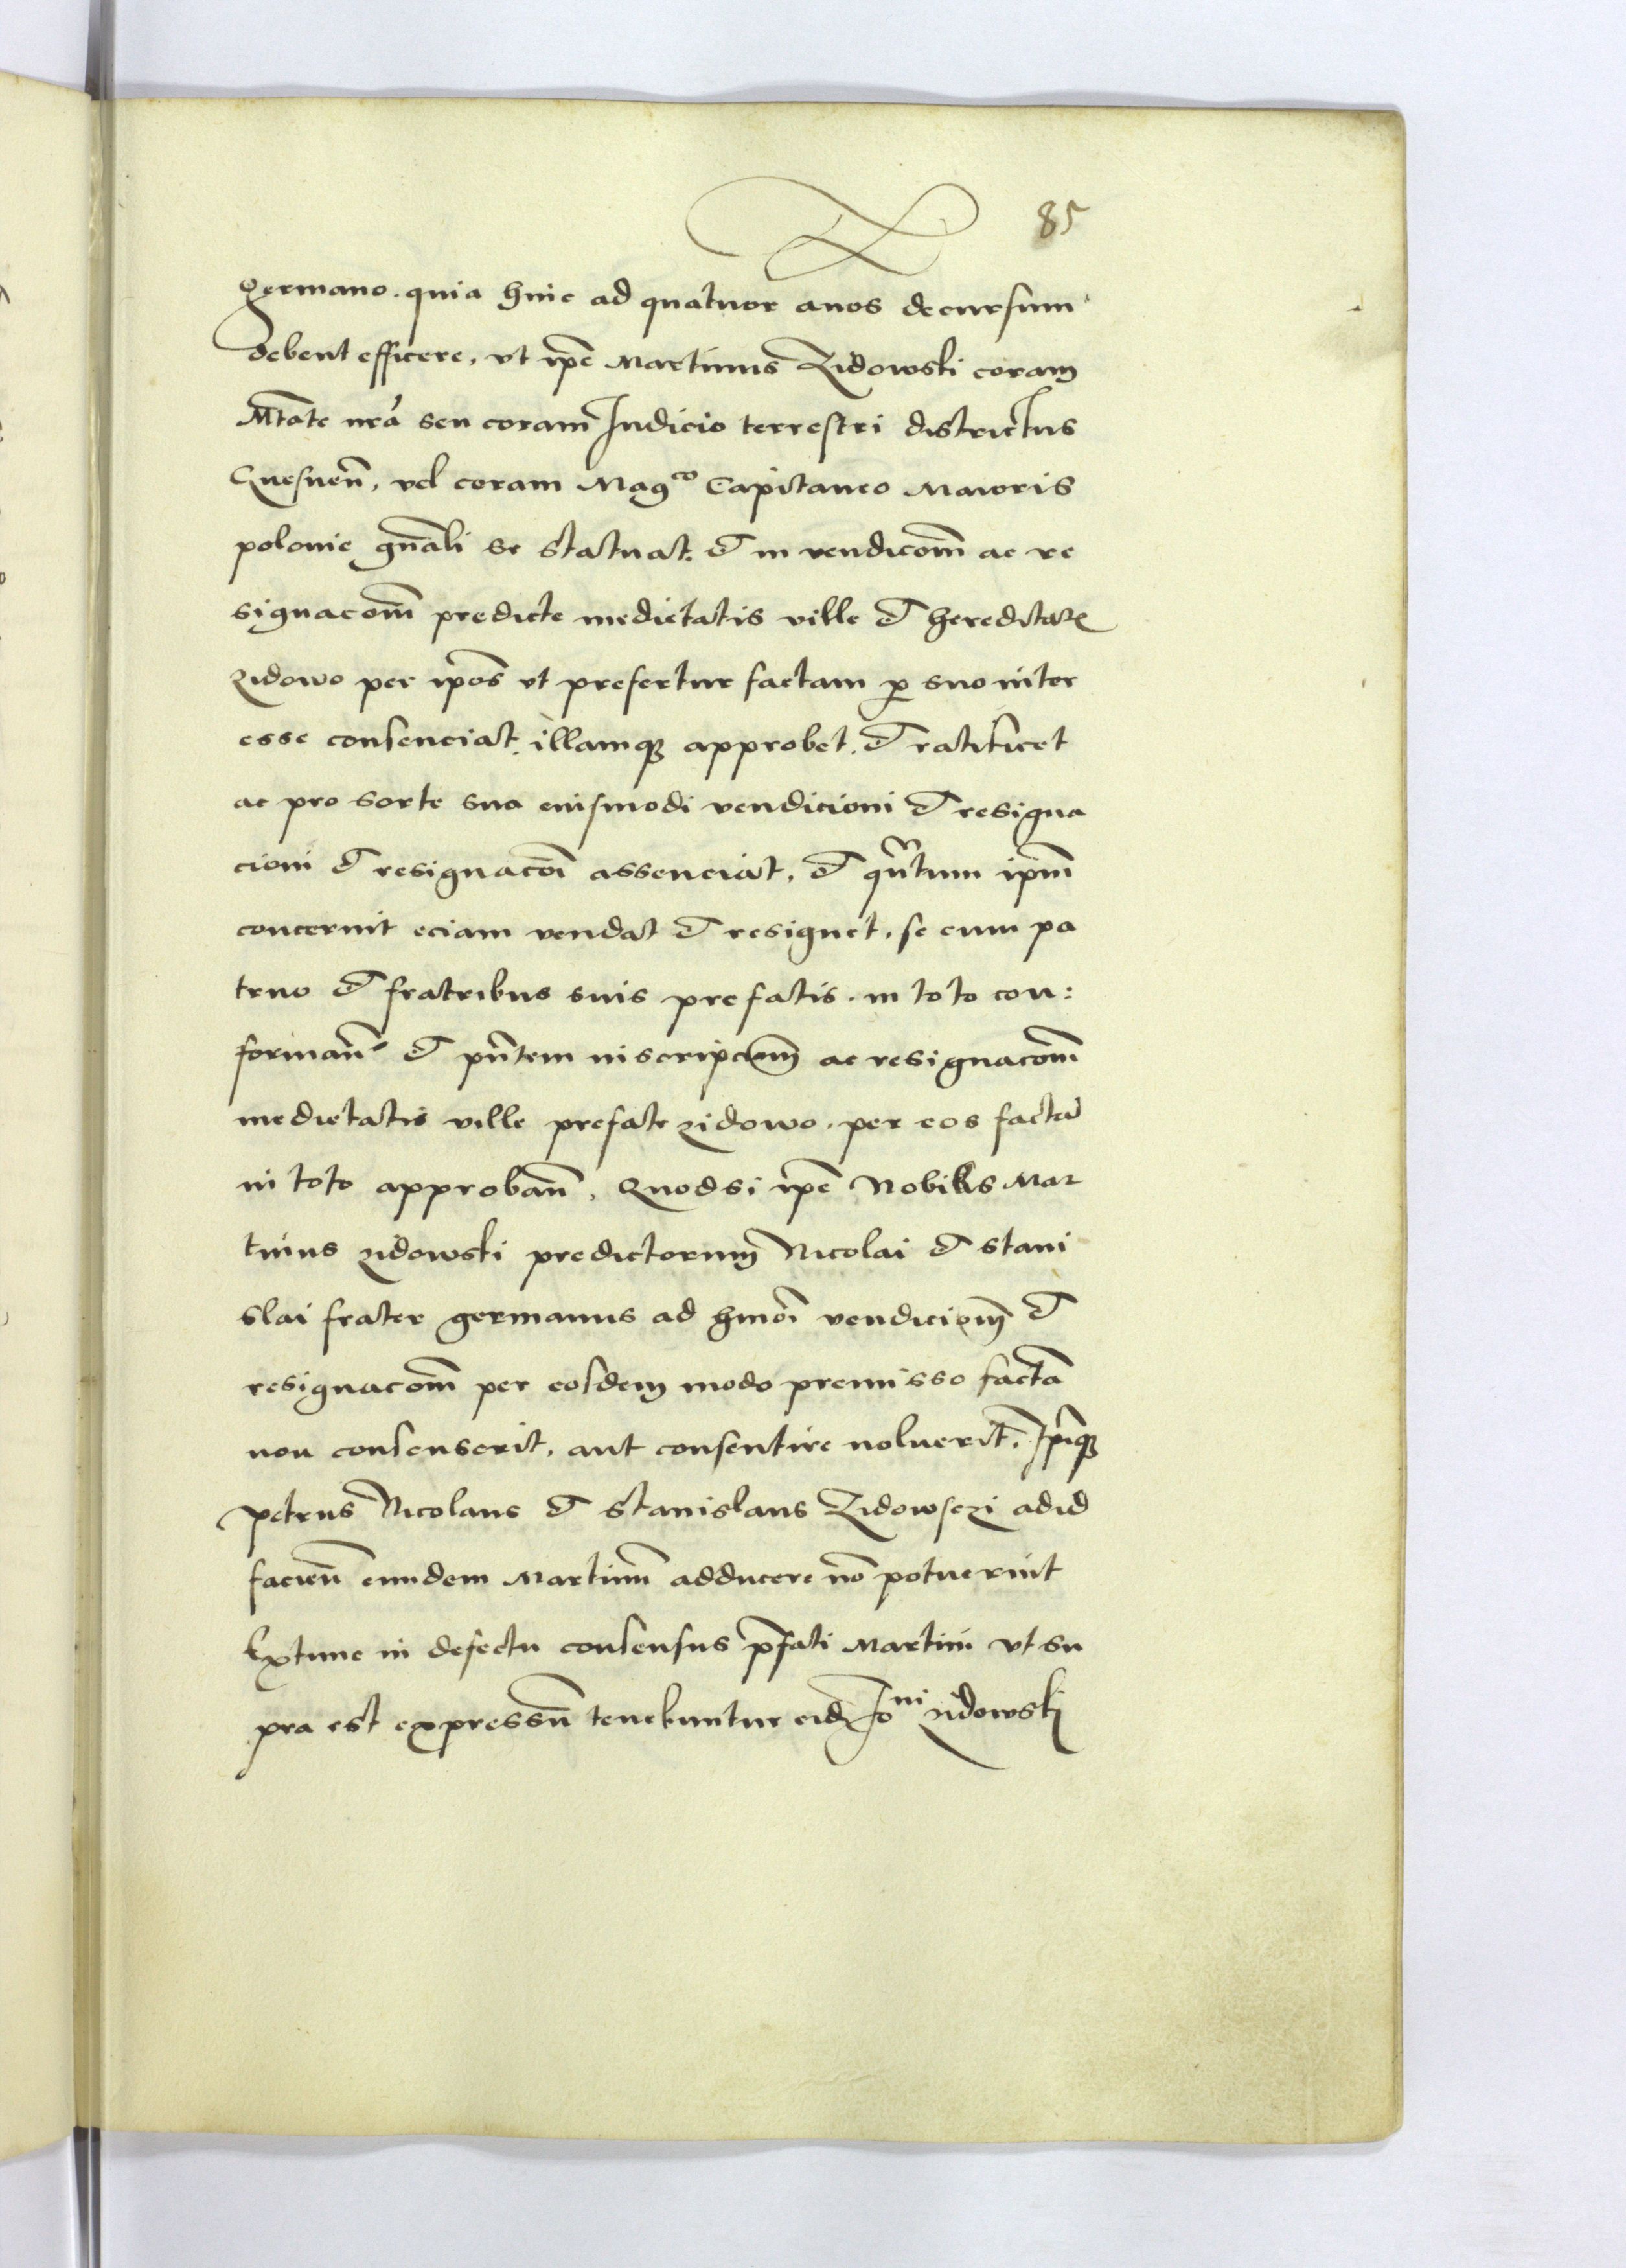 85
germano. quia hinc ad quatuor anos decursum
debent efficere, vt ip̄e Martinus Zidowski coram
M̄tate nr̄a seu coram Iudicio terrestri districtus
Gnesnen̄, vel coram Magco Capitaneo Maioris
polonie gn̄ali se statuat. et in vendicōm ac re
signacōm predicte medietatis ville et hereditatꝭ
zidowo per ip̄os vt prefertur factam ꝓ suo inter
esse consenciat. illamqꝫ approbet. et ratificet
ac pro sorte sua eiusmodi vendicioni et resigna
cioni et resignacōi assenciat, et qn̄tum ip̄m
concernit eciam vendat et resignet, se cum pa
truo et fratribus suis prefatis. in toto con:
forman̄ et pn̄tem inscripcōm ac resignacōm
medietatis ville prefate zidowo. per eos factā
in toto approban̄, Quodsi ip̄e Nobilis Mar
tinus zidowski predictorum Nicolai et stani
slai frater germanus ad hmōi vendiciōm et
resignacōm per eosdem modo premisso factā
non consenserit, aut consentire noluerit, Ip̄iqꝫ
petrus Nicolaus et stanislaus Zidowsczi ad id
facien̄ eundem Martinū adducere nō potuerint
Extunc in defectu consensus p̄fati Martini vt su
pra est expressū tenebuntur eidꝫ Ioni zidowski